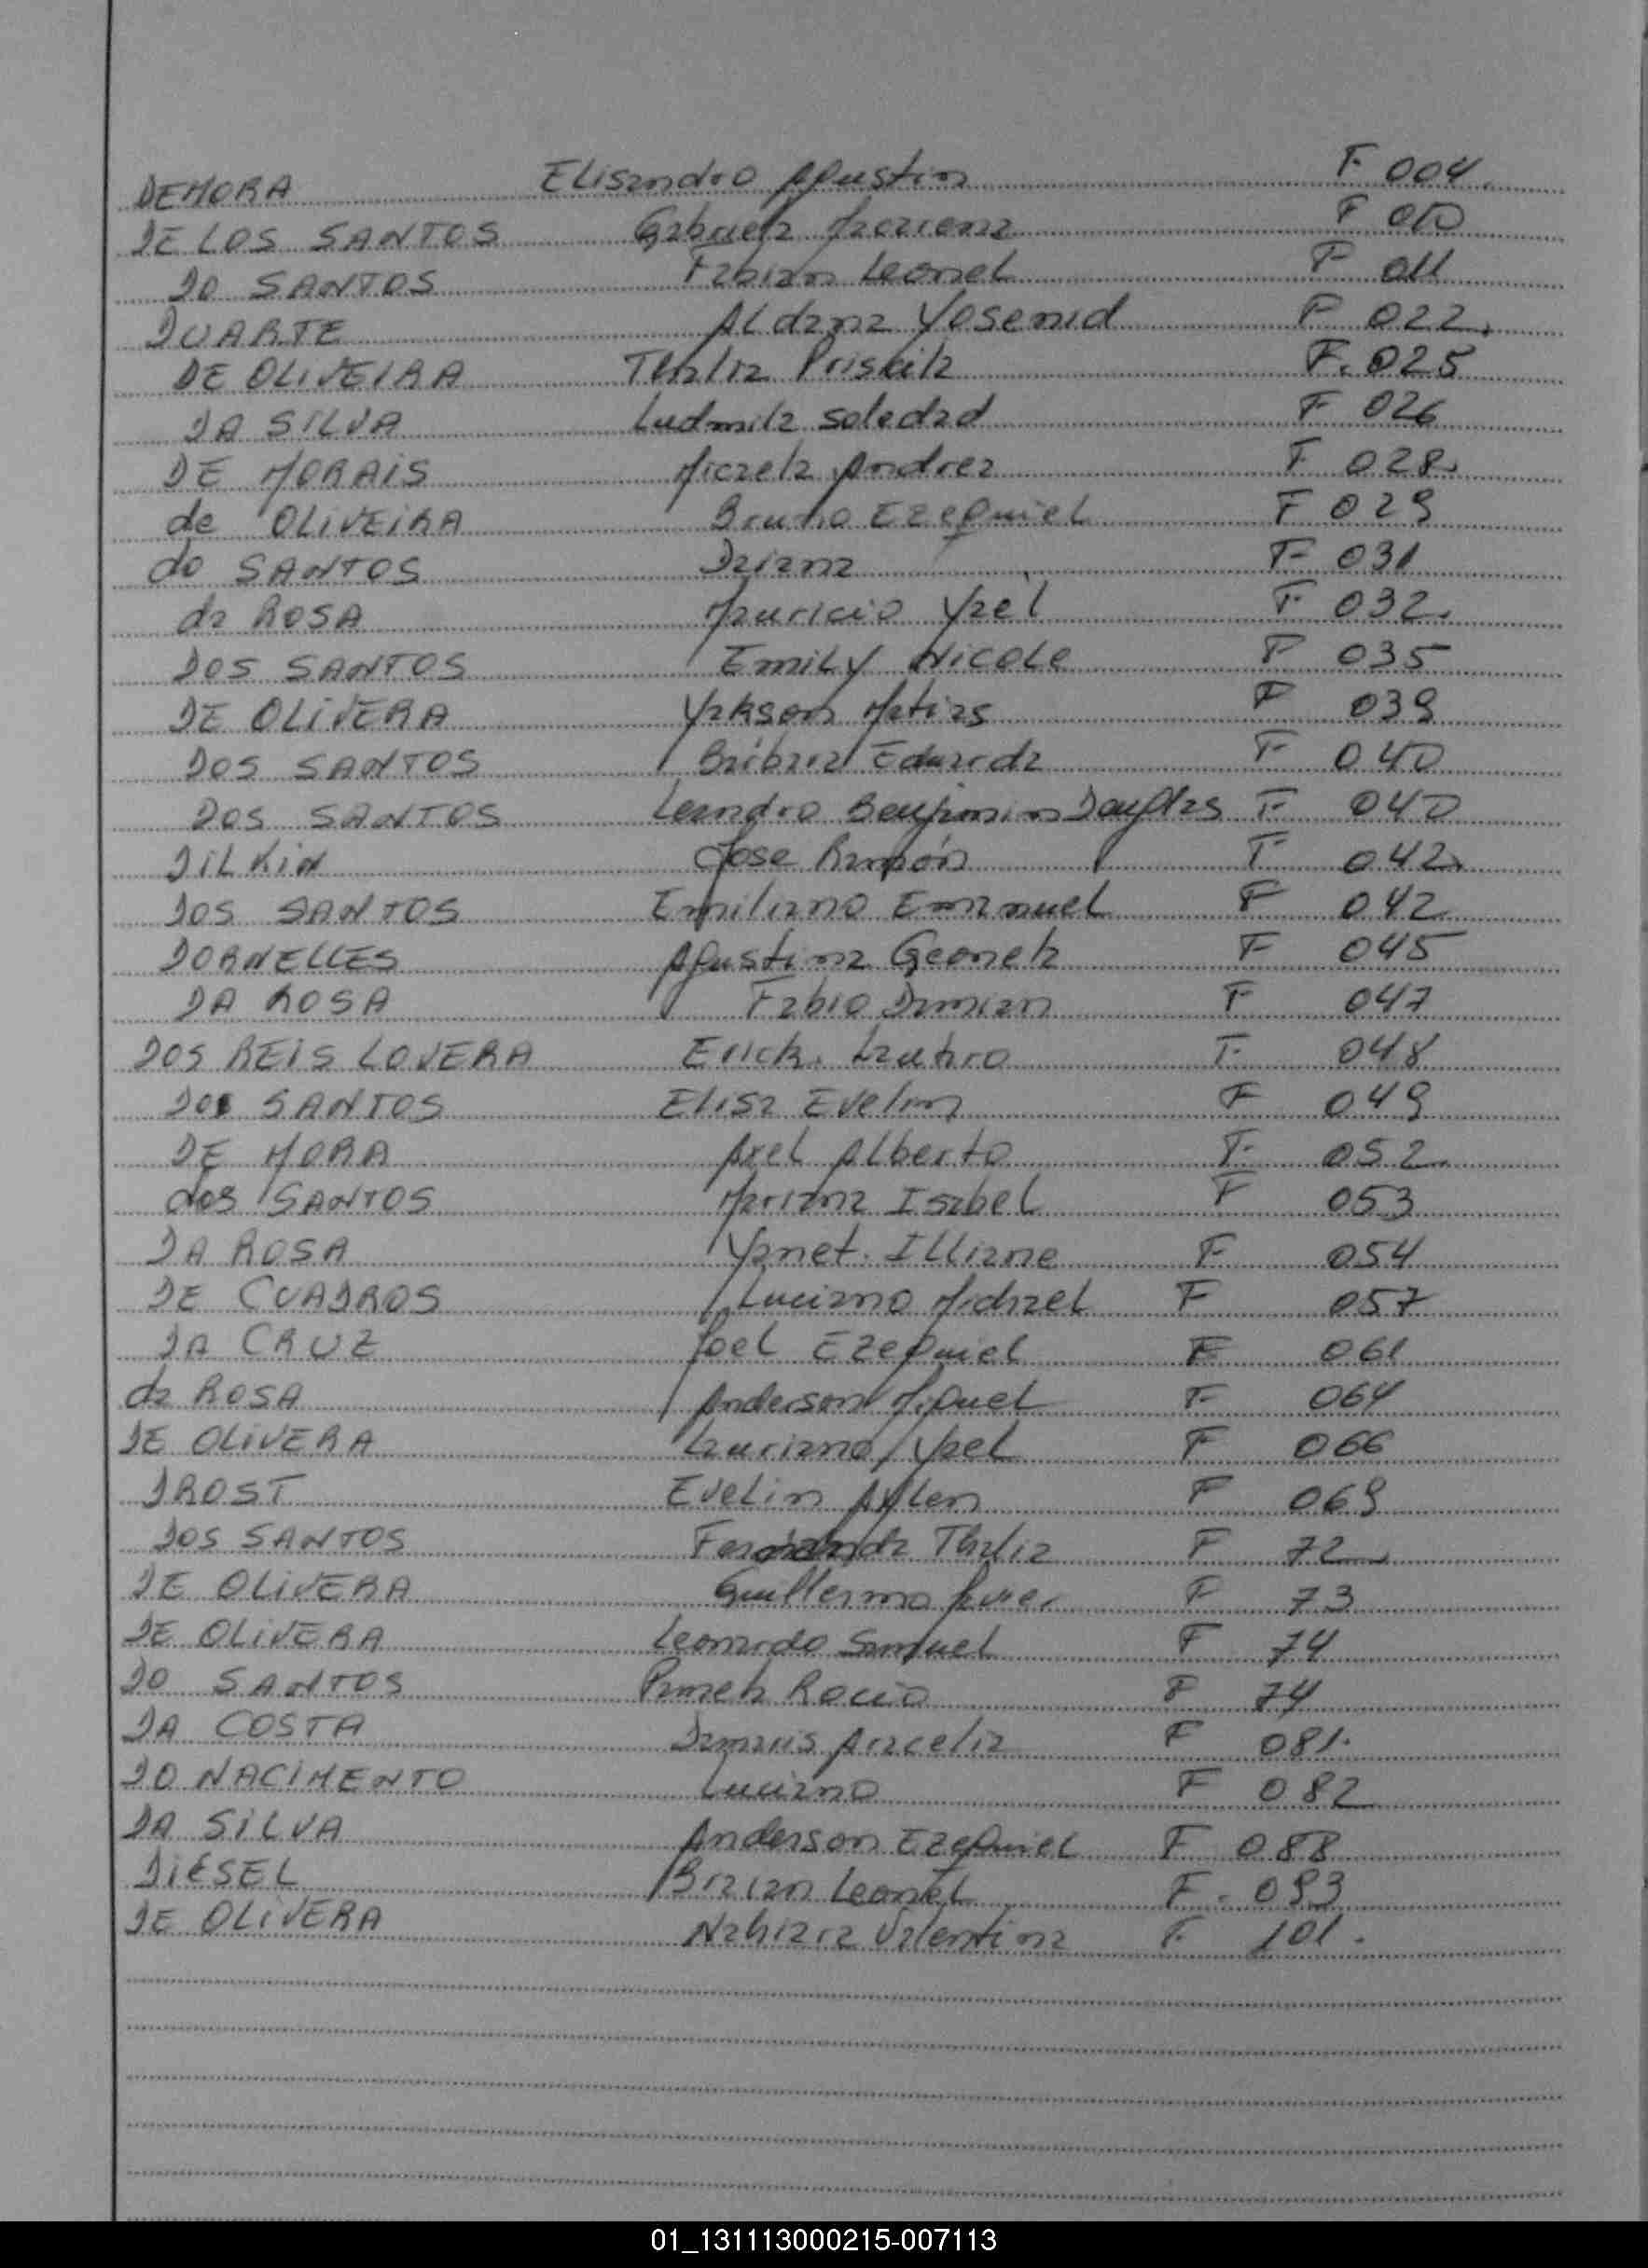 DEMORA Elisandro Agustin F 004
DE LOS SANTOS Gabriela Mariana F 010
DO SANTOS Fabian Leonel F 011
DUARTE Aldana Yosenid F 022
DE OLIVEIRA Thalia Priscila F. 025
DA SILVA Ludmila Soledad F 026
DE MORAIS Micaela Andrea F 028
de OLIVEIRA Bruno Ezequiel F 029
do SANTOS Daiana F 031
da ROSA Mauricio Yael F 032
DOS SANTOS Emily Nicole F 035
DE OLIVERA Yakson Matias F 039
DOS SANTOS Barbara Eduarda F 040
DOS SANTOS Leandro Benjimin Douglas F 040
DILKIN Jose Ramón F 042
DOS SANTOS Emiliano Emanuel F 042
DORNELLES Agustina Geonela F 045
DA ROSA Fabio Damian F 047
DOS REIS LOVERA Erick. Lautaro F. 048
DOS SANTOS Elisa Evelin F 049
DE MORA Axel Alberto F. 052
dos SANTOS Mariana Isabel F 053
DA ROSA Yanet. Illiane F 054
DE CUADROS Luciano Michael F 057
DA CRUZ Joel Ezequiel F 061
da ROSA Anderson Miguel F 064
DE OLIVERA Lauriano Yael F 066
DROST Evelin Aylen F 069
DOS SANTOS Fernanda Thalia F 72
DE OLIVERA Guillermo Javier F 73
DE OLIVERA Leonardo Samuel F 74
DO SANTOS Pamela Rocio F 74
DA COSTA Damaris Aracelia F 081.
DO NACIMENTO Luciano F 082
DA SILVA Anderson Ezequiel F 088
DIESEL Braian Leonel F. 093
DE OLIVERA Nahiara Valentina F. 101.
01_131113000215-007113